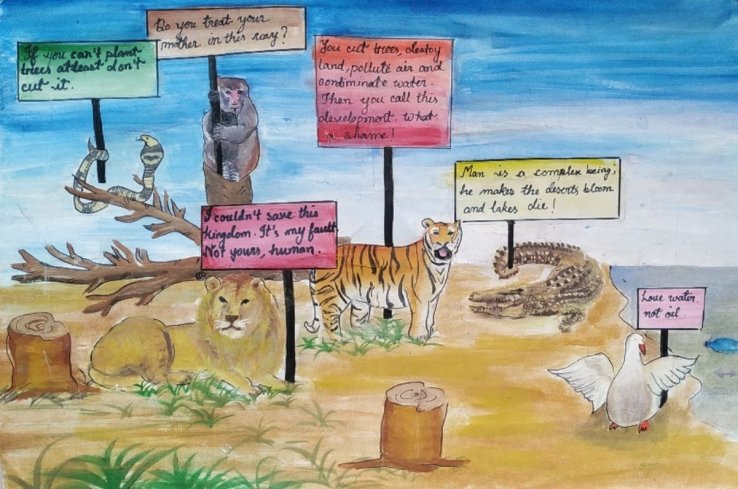 Do you treat your
mother in this way?
If you can't plant
trees atleast don't
cut it.
You cut trees, destoy
land, pollute air and
contiminate water.
Then you call this
development. What
a shame!
Man is a complex being;
he makes the deserts bloom
and lakes die!
I couldn't save this
kingdom. It's my fault.
Not yours, human.
Love water,
not oil